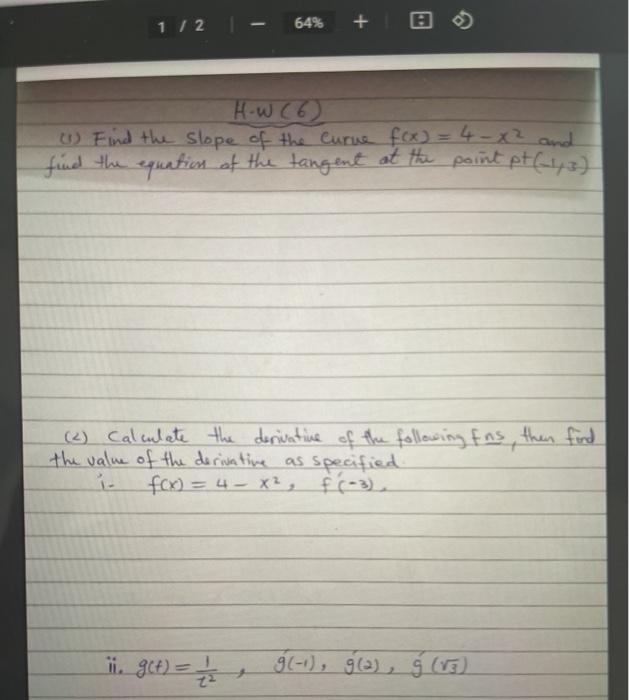 1 / 2 | − 64% +
H.W (6)
(1) Find the slope of the curve f(x) = 4 - x² and
find the equation of the tangent at the point pt(-1,3)
(2) Calculate the derivative of the following fns, then find
the value of the derivative as specified.
i- f(x) = 4 - x², f'(-3),
ii. g(t) = 1/t², g'(-1), g'(2), g'(√3)